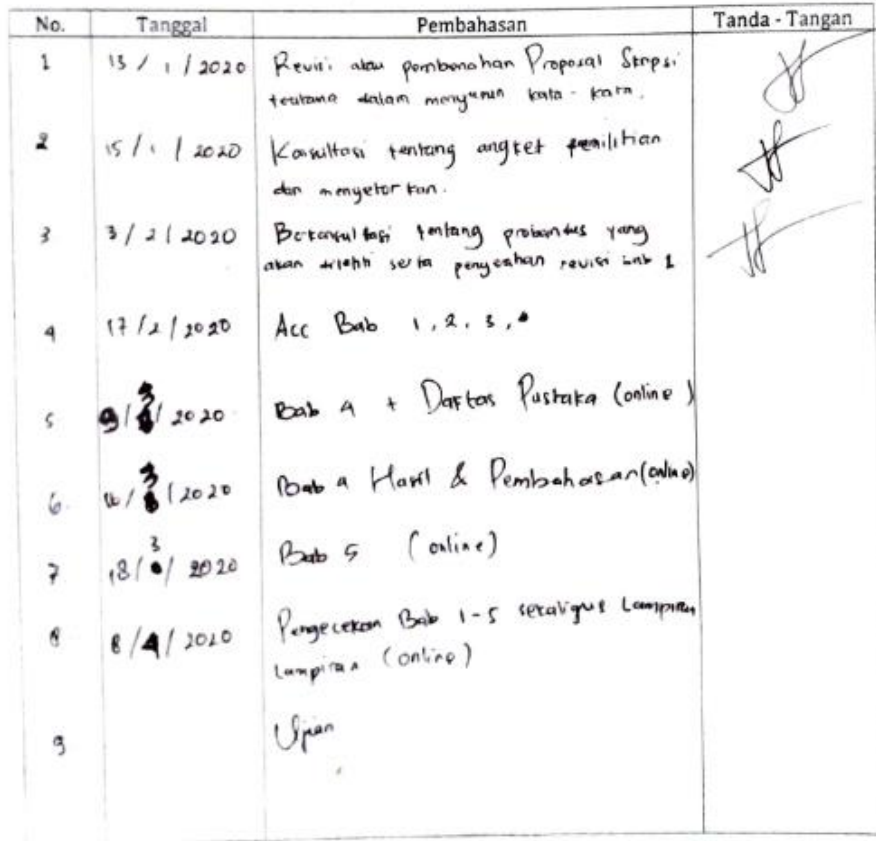 No. Tanggal Pembahasan Tanda - Tangan
1 13 / 1 / 2020 Revisi atau pembenahan Proposal Skripsi
terutama dalam menyusun kata - kata.
2 15 / 1 / 2020 Konsultasi tentang angket penilitian
dan menyetorkan.
3 3 / 2 / 2020 Berkonsultasi tentang probandus yang
akan diteliti serta penyerahan revisi bab 1
4 17 / 2 / 2020 Acc Bab 1, 2, 3,
5 9 / 3 / 2020 Bab 4 + Daftas Pustaka (online)
6. 16 / 3 / 2020 Bab 4 Hasil & Pembahasan (online)
7 18 / 3 / 2020 Bab 5 (online)
8 8 / 4 / 2020 Pengecekan Bab 1-5 sekaligus Lampiran
Lampiran (online)
9 Ujian